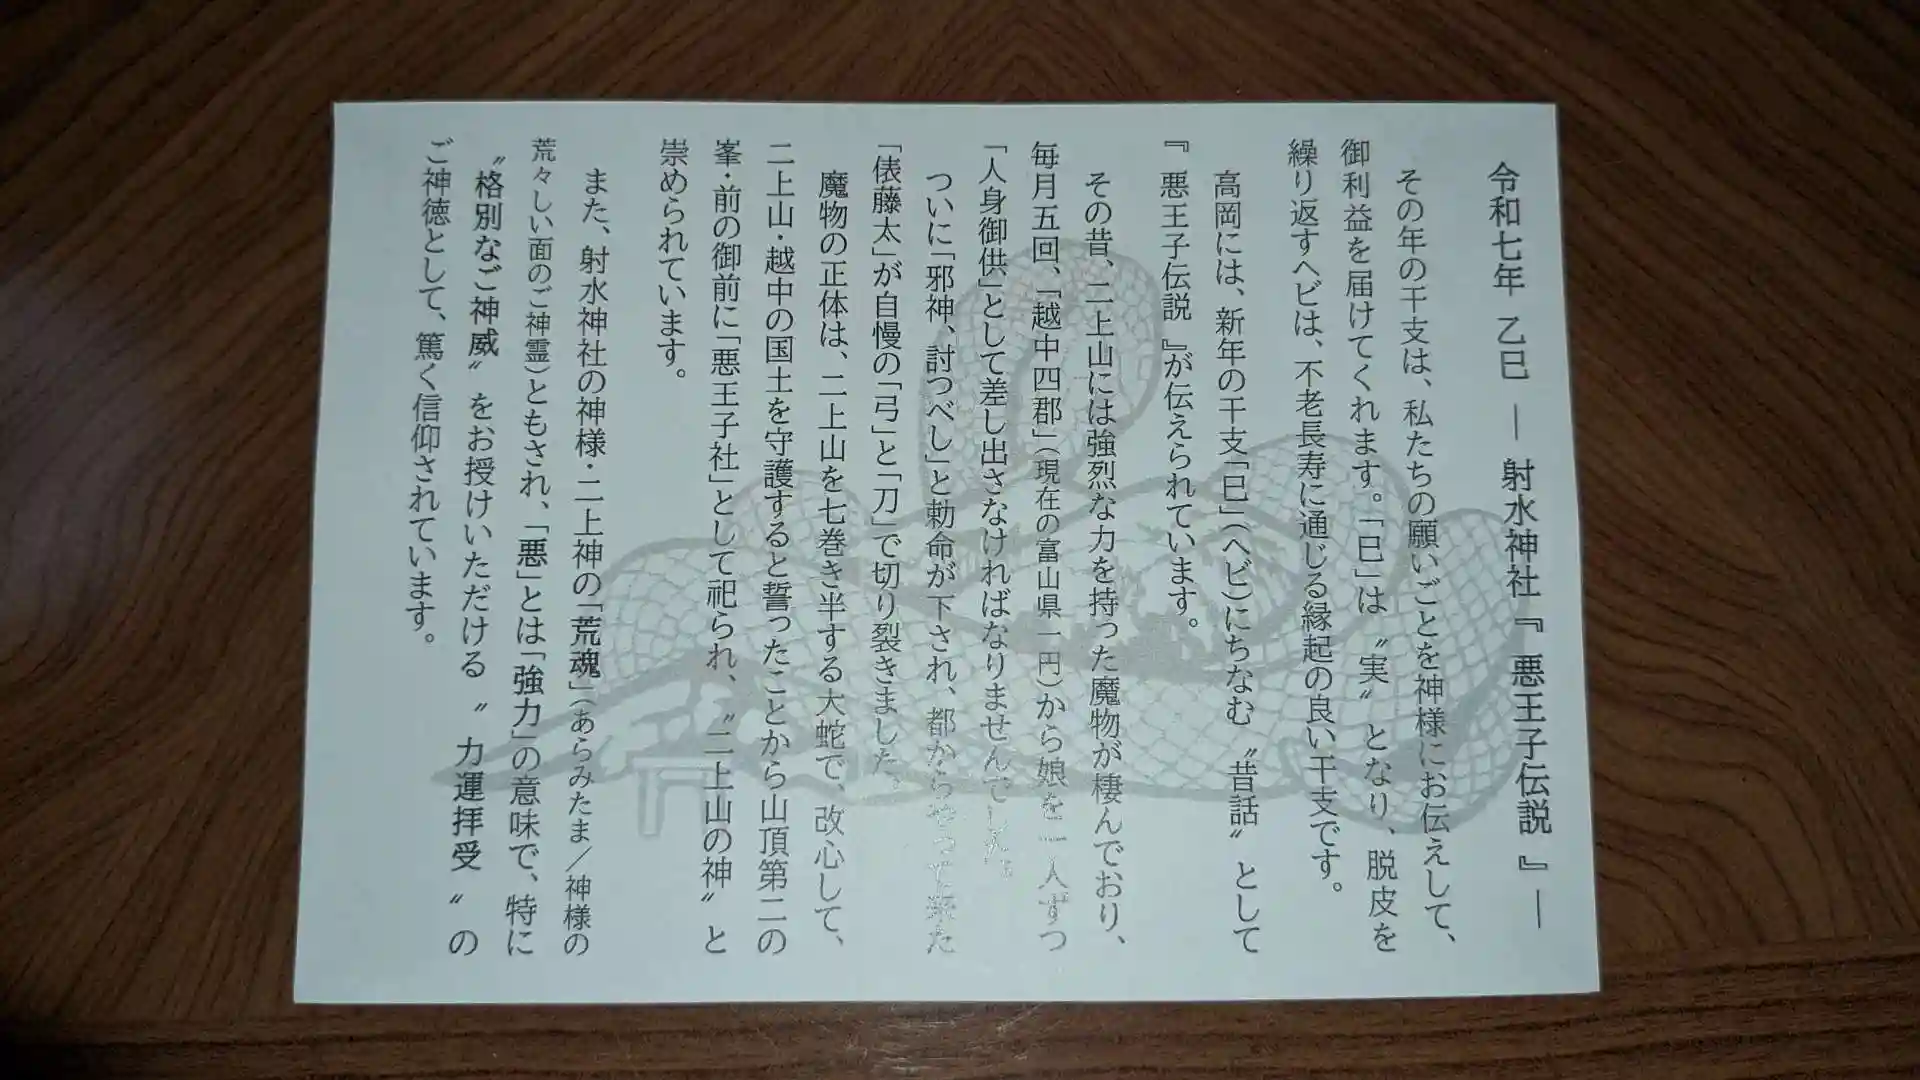 令和七年 乙巳 ― 射水神社『 悪王子伝説 』―
その年の干支は、私たちの願いごとを神様にお伝えして、
御利益を届けてくれます。「巳」は 〝実〟 となり、脱皮を
繰り返すヘビは、不老長寿に通じる縁起の良い干支です。
高岡には、新年の干支「巳」(ヘビ)にちなむ 〝昔話〟 として
『 悪王子伝説 』が伝えられています。
その昔、二上山には強烈な力を持った魔物が棲んでおり、
毎月五回、「越中四郡」(現在の富山県一円)から娘を一人ずつ
「人身御供」として差し出さなければなりませんでした。
ついに「邪神、討つべし」と勅命が下され、都からやって来た
「俵藤太」が自慢の「弓」と「刀」で切り裂きました。
魔物の正体は、二上山を七巻き半する大蛇で、改心して、
二上山・越中の国土を守護すると誓ったことから山頂第二の
峯・前の御前に「悪王子社」として祀られ、〝二上山の神〟 と
崇められています。
また、射水神社の神様・二上神の「荒魂」(あらみたま/神様の
荒々しい面のご神霊)ともされ、「悪」とは「強力」の意味で、特に
〝格別なご神威〟 をお授けいただける 〝 力運拝受 〟 の
ご神徳として、篤く信仰されています。